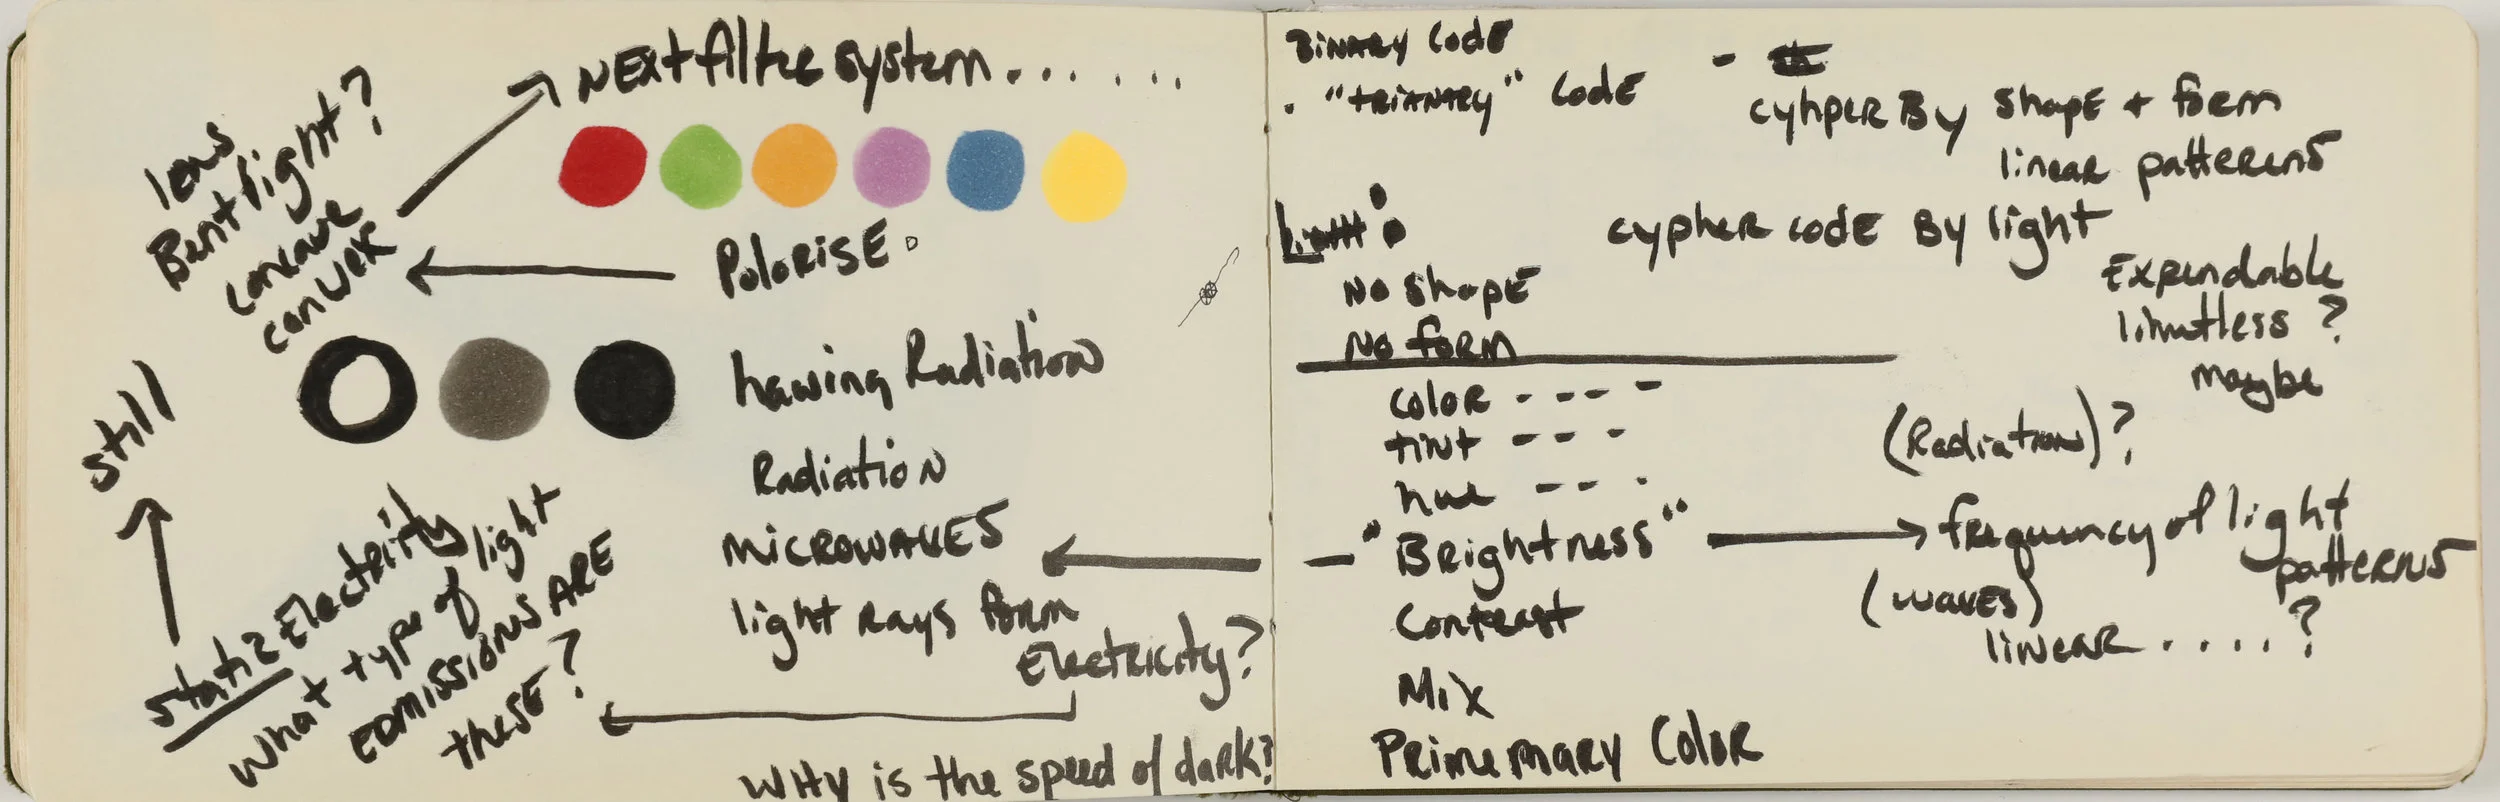 NEXt filtee system.......
lens
Bent light?
concave
convex
Polorise.
hawing Radiation
Radiation
MICROWAVES
light rays form
Electricity?
still
static Electricity
what type of light
EOMISSIONS ARE
these?
WHY is the speed of dark?
BINARY CODE
. "tRIANARY" CODE
- cyhper By shape + form
linear patterens
cypher code By light
Expendable
limitless ?
maybe
No shape
No form
color - - - -
tint - - -
hue - - -
- "Brightness"
Contrast
Mix
PRimemary Color
(Radiation)?
frequency of light
patterns
(waves)
linear.....?